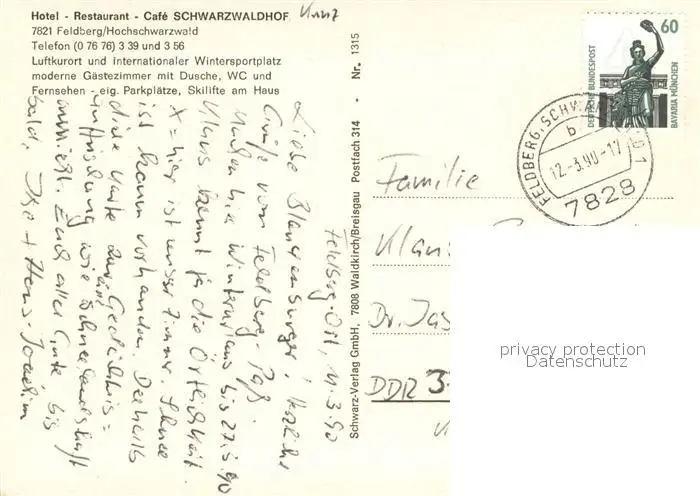 Hotel - Restaurant - Café SCHWARZWALDHOF
7821 Feldberg/Hochschwarzwald
Telefon (0 76 76) 3 39 und 3 56
Luftkurort und internationaler Wintersportplatz
moderne Gästezimmer mit Dusche, WC und
Fernsehen - eig. Parkplätze, Skilifte am Haus
Feldberg-Ort, 11.3.90
Liebe Blankenburger! Herzliche
Grüße vom Feldberg-Paß.
Machen hier Winterurlaub bis 27.3.90
Klaus kennt ja die Örtlichkeit.
X = hier ist unser Zimmer. Schnee
ist kaum vorhanden. Deshalb
diese Karte zur Gedächtnis=
auffrischung wie eine Schneelandschaft
aussieht. Euch alles Gute bis
bald, Ilse + Hans-Joachim
Schwarz-Verlag GmbH, 7808 Waldkirch/Breisgau Postfach 314 - Nr. 1315
60
DEUTSCHE BUNDESPOST
BAVARIA MÜNCHEN
FELDBERG, SCHWARZW 1
b
12.-3.90-17
7828
Familie
Klaus
Dr.
DDR 3
privacy protection
Datenschutz